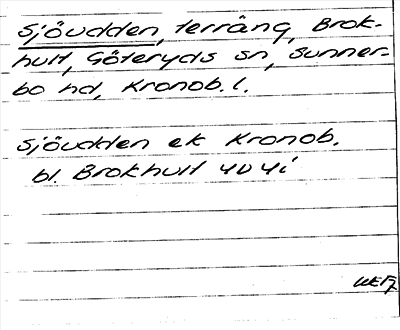 Sjöudden, terräng, Brok-
hult, Göteryds sn, Sunner-
bo hd, Kronob. l.
Sjöudden ek Kronob.
bl. Brokhult 4D 4i